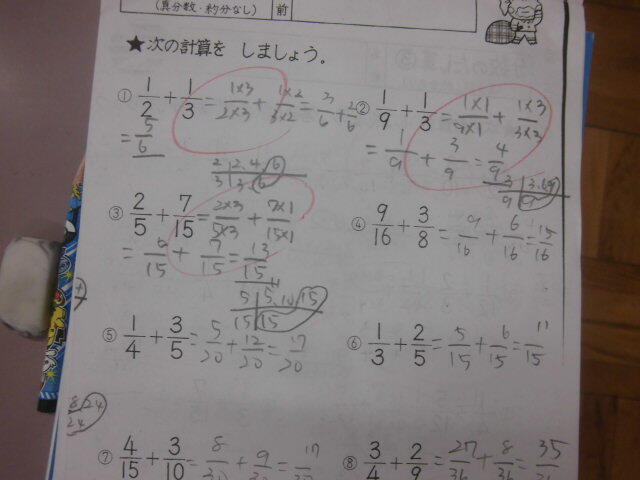 (真分数・約分なし) 前
★次の計算を しましょう。
① 1/2 + 1/3 = 1×3/2×3 + 1×2/3×2 = 3/6 + 2/6
= 5/6
2 | 2 4 6
3 | 3 6
② 1/9 + 1/3 = 1×1/9×1 + 1×3/3×3
= 1/9 + 3/9 = 4/9
3 | 3 6 9
9 | 9
③ 2/5 + 7/15 = 2×3/5×3 + 7×1/15×1
= 6/15 + 7/15 = 13/15
5 | 5 10 15
15 | 15
④ 9/16 + 3/8 = 9/16 + 6/16 = 15/16
⑤ 1/4 + 3/5 = 5/20 + 12/20 = 17/20
⑥ 1/3 + 2/5 = 5/15 + 6/15 = 11/15
8 24
24
⑦ 4/15 + 3/10 = 8/30 + 9/30 = 17/30
⑧ 3/4 + 2/9 = 27/36 + 8/36 = 35/36